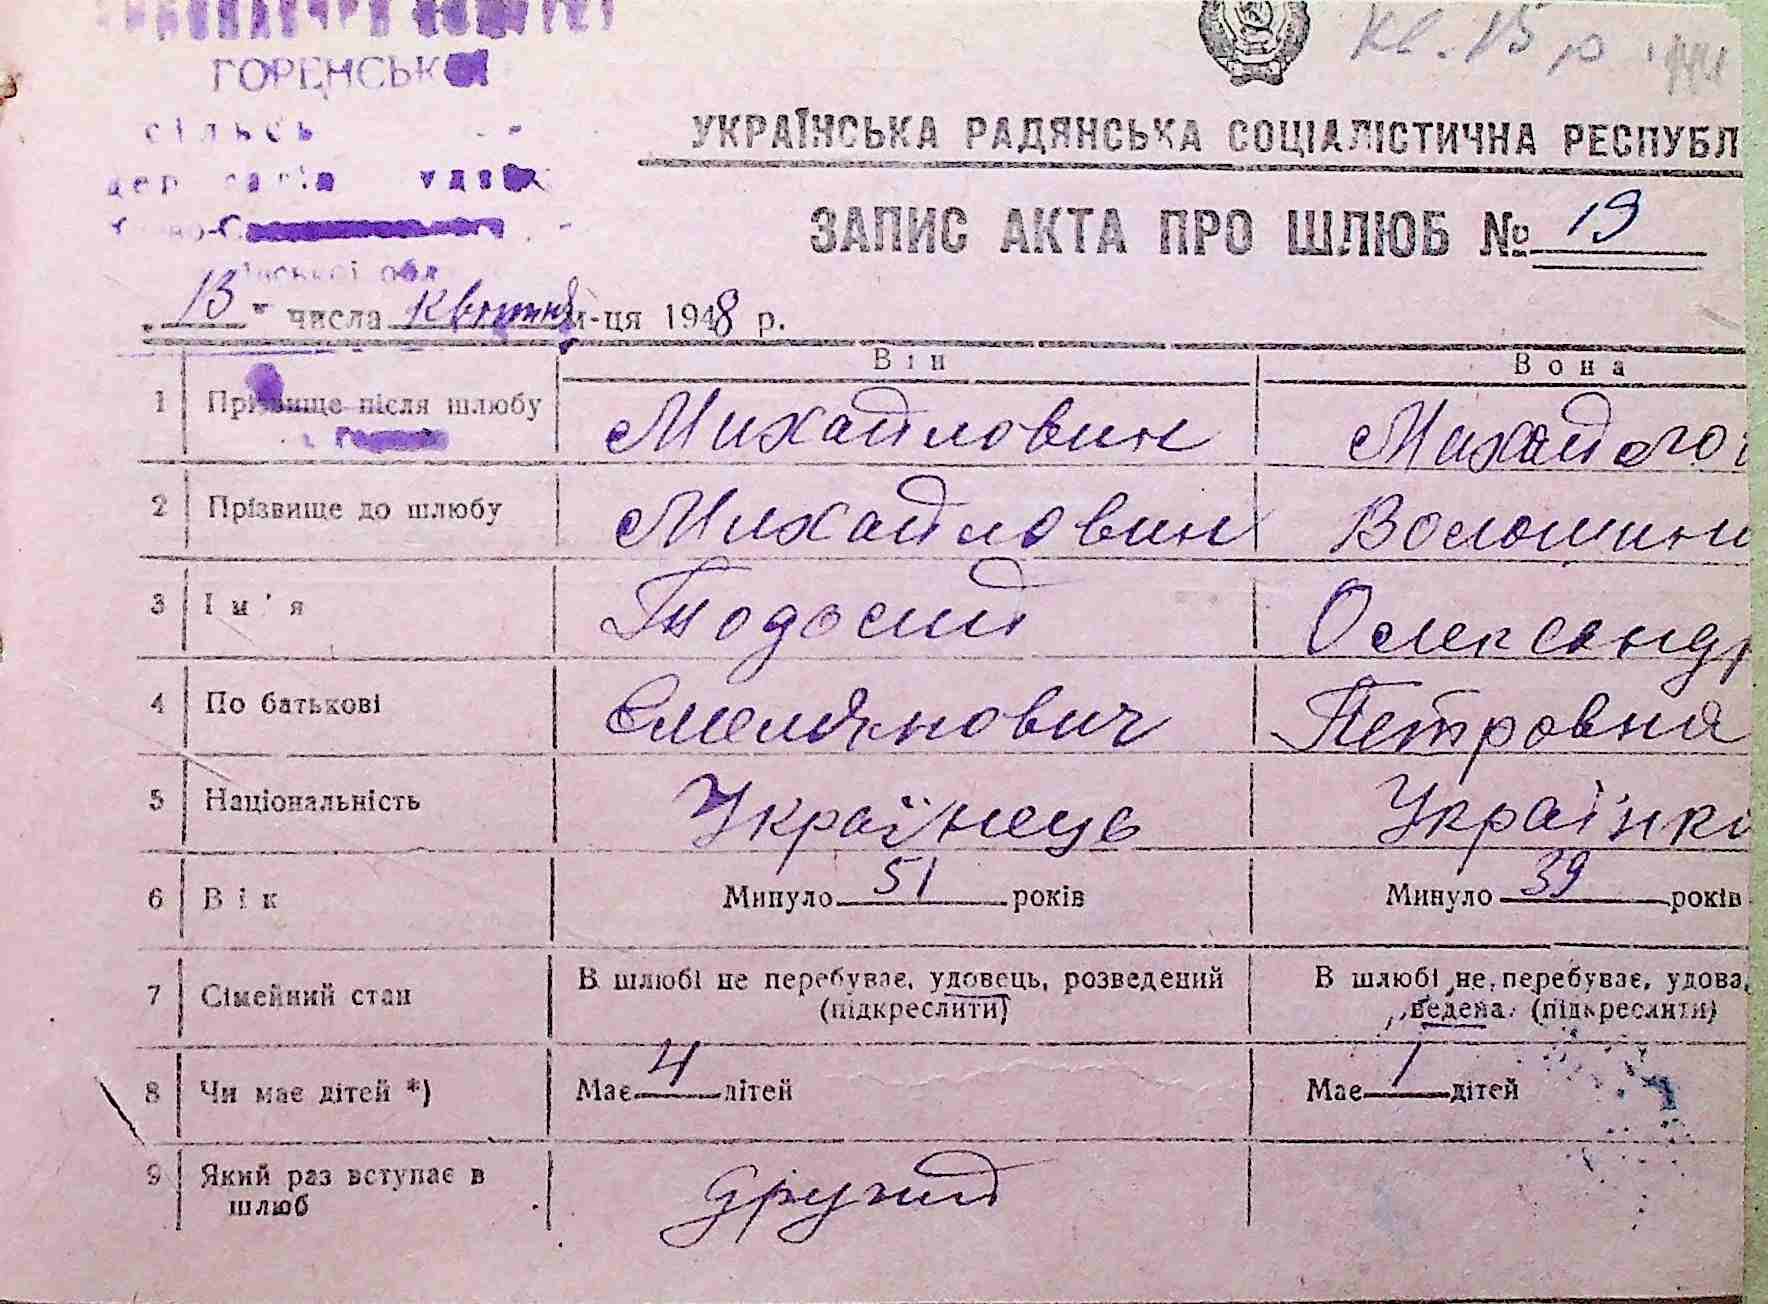 ГОРЕНСЬКОЇ
УКРАЇНСЬКА РАДЯНСЬКА СОЦІАЛІСТИЧНА РЕСПУБЛ
ЗАПИС АКТА ПРО ШЛЮБ № 19
„13" числа квітня м-ця 1948 р.
Він Вона
1 Прізвище після шлюбу Михайловин Михайло
2 Прізвище до шлюбу Михайловин Волошин
3 Ім'я Тодосий Олександр
4 По батькові Емелянович Петровна
5 Національність Українець Українка
6 Вік Минуло 51 років Минуло 39 років
7 Сімейний стан В шлюбі не перебуває, удовець, розведений В шлюбі не перебуває, удова,
(підкреслити) ведена (підкреслити)
8 Чи має дітей *) Має 4 дітей Має 1 дітей
9 Який раз вступає в
шлюб другий